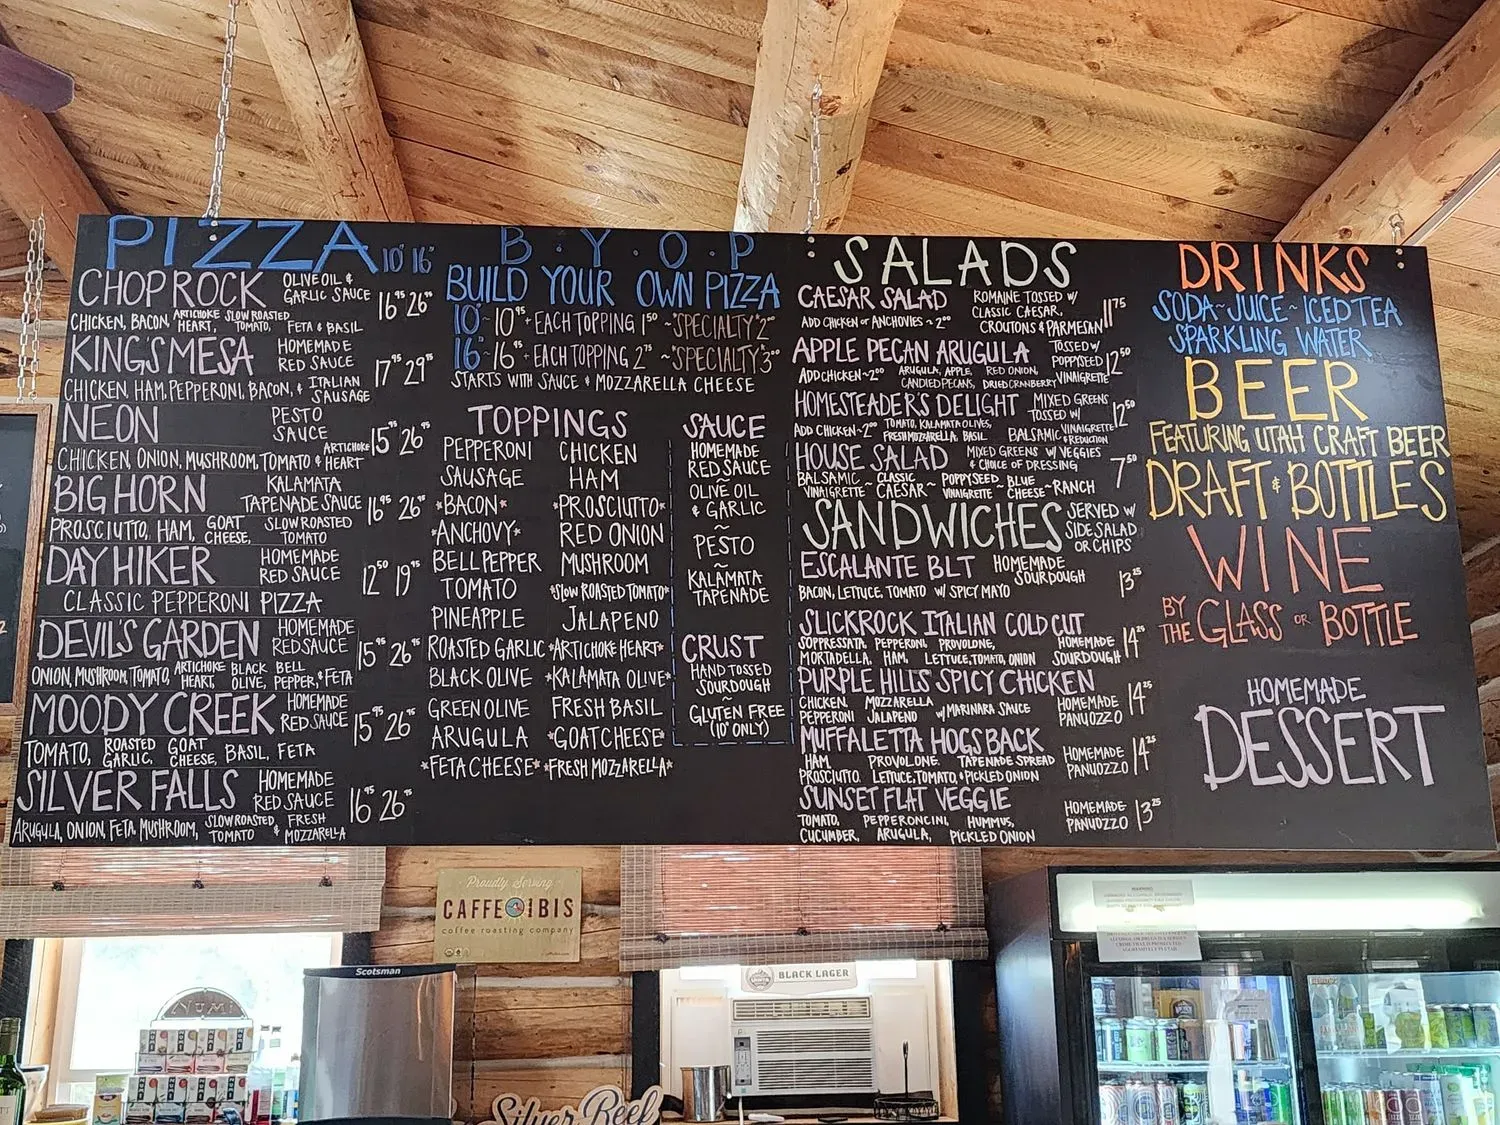 PIZZA 10" 16"
CHOPROCK OLIVE OIL & GARLIC SAUCE 16⁹⁵ 26⁹⁵
CHICKEN, BACON, ARTICHOKE HEART, SLOW ROASTED TOMATO, FETA & BASIL
KING'S MESA HOMEMADE RED SAUCE 17⁹⁵ 29⁹⁵
CHICKEN, HAM, PEPPERONI, BACON, & ITALIAN SAUSAGE
NEON PESTO SAUCE 15⁹⁵ 26⁹⁵
CHICKEN, ONION, MUSHROOM, TOMATO & ARTICHOKE HEART
BIG HORN KALAMATA TAPENADE SAUCE 16⁹⁵ 26⁹⁵
PROSCIUTTO, HAM, GOAT CHEESE, SLOW ROASTED TOMATO
DAY HIKER HOMEMADE RED SAUCE 12⁵⁰ 19⁹⁵
CLASSIC PEPPERONI PIZZA
DEVIL'S GARDEN HOMEMADE RED SAUCE 15⁹⁵ 26⁹⁵
ONION, MUSHROOM, TOMATO, ARTICHOKE HEART, BLACK OLIVE, BELL PEPPER, & FETA
MOODY CREEK HOMEMADE RED SAUCE 15⁹⁵ 26⁹⁵
TOMATO, ROASTED GARLIC, GOAT CHEESE, BASIL, FETA
SILVER FALLS HOMEMADE RED SAUCE 16⁹⁵ 26⁹⁵
ARUGULA, ONION, FETA, MUSHROOM, SLOW ROASTED TOMATO & FRESH MOZZARELLA
B.Y.O.P
BUILD YOUR OWN PIZZA
10" ~ 10⁹⁵ + EACH TOPPING 1⁵⁰ ~ *SPECIALTY* 2⁰⁰
16" ~ 16⁹⁵ + EACH TOPPING 2⁷⁵ ~ *SPECIALTY* 3⁰⁰
STARTS WITH SAUCE & MOZZARELLA CHEESE
TOPPINGS
PEPPERONI CHICKEN
SAUSAGE HAM
*BACON* *PROSCIUTTO*
*ANCHOVY* RED ONION
BELL PEPPER MUSHROOM
TOMATO *SLOW ROASTED TOMATO*
PINEAPPLE JALAPENO
ROASTED GARLIC *ARTICHOKE HEART*
BLACK OLIVE *KALAMATA OLIVE*
GREEN OLIVE FRESH BASIL
ARUGULA *GOAT CHEESE*
*FETA CHEESE* *FRESH MOZZARELLA*
SAUCE
HOMEMADE
RED SAUCE
~
OLIVE OIL
& GARLIC
~
PESTO
~
KALAMATA
TAPENADE
CRUST
HAND TOSSED
SOURDOUGH
~
GLUTEN FREE
(10" ONLY)
SALADS
CAESAR SALAD ROMAINE TOSSED W/ CLASSIC CAESAR, CROUTONS & PARMESAN 11⁷⁵
ADD CHICKEN OR ANCHOVIES ~ 2⁰⁰
APPLE PECAN ARUGULA TOSSED W/ POPPYSEED VINAIGRETTE 12⁵⁰
ADD CHICKEN ~ 2⁰⁰ ARUGULA, APPLE, RED ONION, CANDIED PECANS, DRIED CRANBERRY
HOMESTEADER'S DELIGHT MIXED GREENS TOSSED W/ BALSAMIC VINAIGRETTE & REDUCTION 12⁵⁰
ADD CHICKEN ~ 2⁰⁰ TOMATO, KALAMATA OLIVES, FRESH MOZZARELLA, BASIL
HOUSE SALAD MIXED GREENS W/ VEGGIES & CHOICE OF DRESSING 7⁵⁰
BALSAMIC VINAIGRETTE ~ CLASSIC CAESAR ~ POPPYSEED VINAIGRETTE ~ BLUE CHEESE ~ RANCH
SANDWICHES SERVED W/ SIDE SALAD OR CHIPS
ESCALANTE BLT HOMEMADE SOURDOUGH 13²⁵
BACON, LETTUCE, TOMATO W/ SPICY MAYO
SLICKROCK ITALIAN COLD CUT
SOPPRESSATA, PEPPERONI, PROVOLONE, MORTADELLA, HAM, LETTUCE, TOMATO, ONION HOMEMADE SOURDOUGH 14²⁵
PURPLE HILLS' SPICY CHICKEN
CHICKEN, MOZZARELLA PEPPERONI JALAPENO W/ MARINARA SAUCE HOMEMADE PANUOZZO 14²⁵
MUFFALETTA HOGSBACK
HAM, PROVOLONE, TAPENADE SPREAD PROSCIUTTO, LETTUCE, TOMATO, & PICKLED ONION HOMEMADE PANUOZZO 14²⁵
SUNSET FLAT VEGGIE
TOMATO, PEPPERONCINI, HUMMUS, CUCUMBER, ARUGULA, PICKLED ONION HOMEMADE PANUOZZO 13²⁵
DRINKS
SODA ~ JUICE ~ ICED TEA
SPARKLING WATER
BEER
FEATURING UTAH CRAFT BEER
DRAFT & BOTTLES
WINE
BY THE GLASS OR BOTTLE
HOMEMADE
DESSERT
Proudly Serving
CAFFE IBIS
coffee roasting company
Scotsman
NUMI
BLACK LAGER
WARNING
Silver Reef